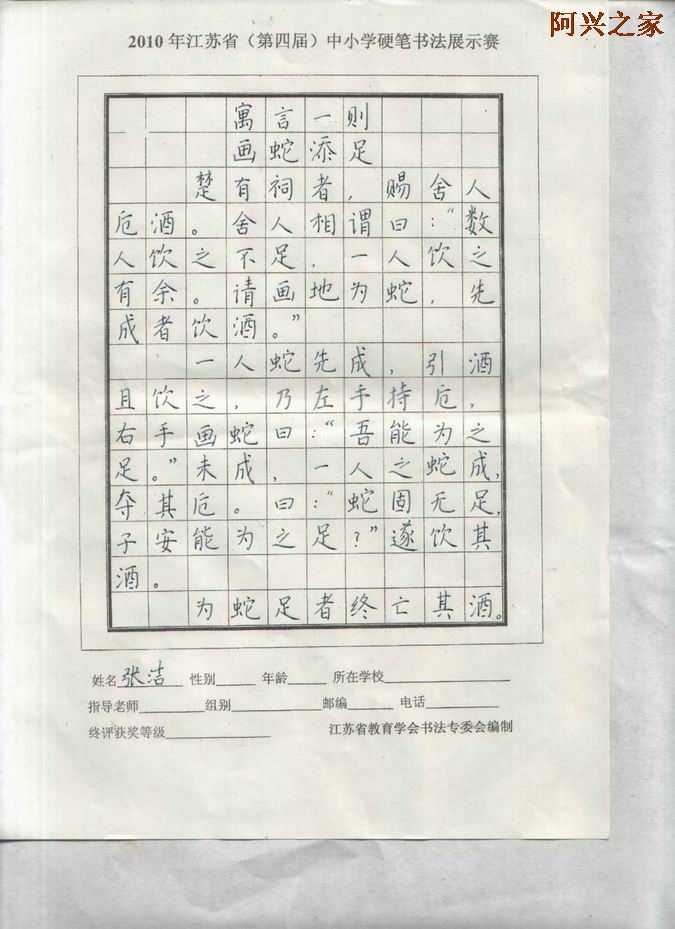 阿兴之家
2010年江苏省（第四届）中小学硬笔书法展示赛
寓言一则
画蛇添足
楚有祠者，赐舍人
卮酒。舍人相谓曰：“数
人饮之不足，一人饮之
有余。请画地为蛇，先
成者饮酒。”
一人蛇先成，引酒
且饮之，乃左手持卮，
右手画蛇曰：“吾能为之
足。”未成，一人之蛇成，
夺其卮。曰：“蛇固无足，
子安能为之足？”遂饮其
酒。
为蛇足者终亡其酒。
姓名张洁 性别 年龄 所在学校
指导老师 组别 邮编 电话
终评获奖等级 江苏省教育学会书法专委会编制